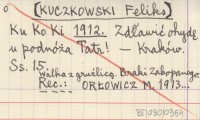 [KUCZKOWSKI Feliks]
Ku Ko Ki 1912. Zdławić ohydę
u podnóża Tatr! – Kraków.
Ss. 15.
Walka z gruźlicą. Braki Zakopanego.
Rec.: ORŁOWICZ M. 1913...